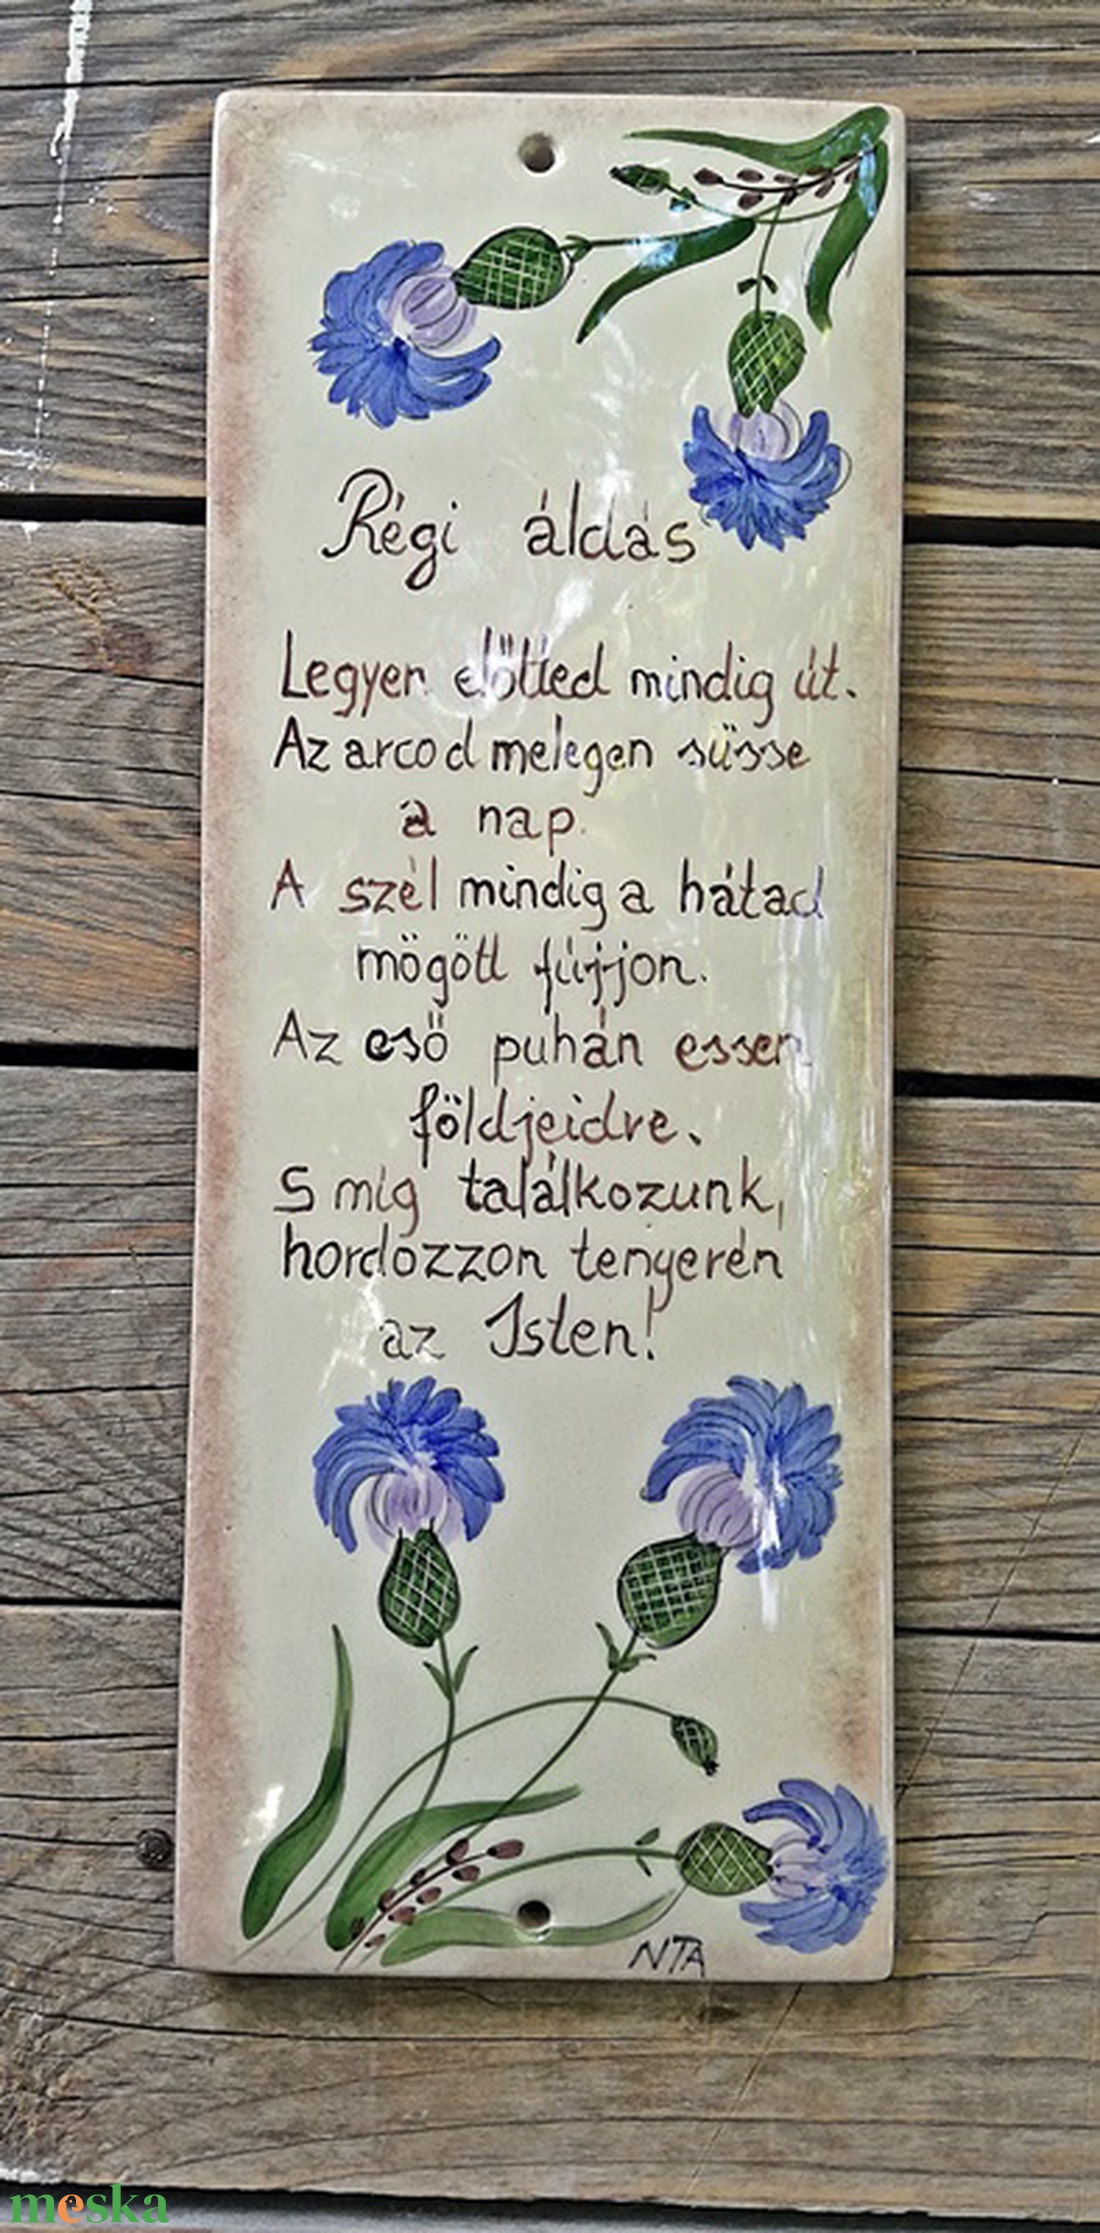 Régi áldás
Legyen előtted mindig út.
Az arcod melegen süsse
a nap.
A szél mindig a hátad
mögött fújjon.
Az eső puhán essen
földjeidre.
S míg találkozunk,
hordozzon tenyerén
az Isten!
NTA
meska